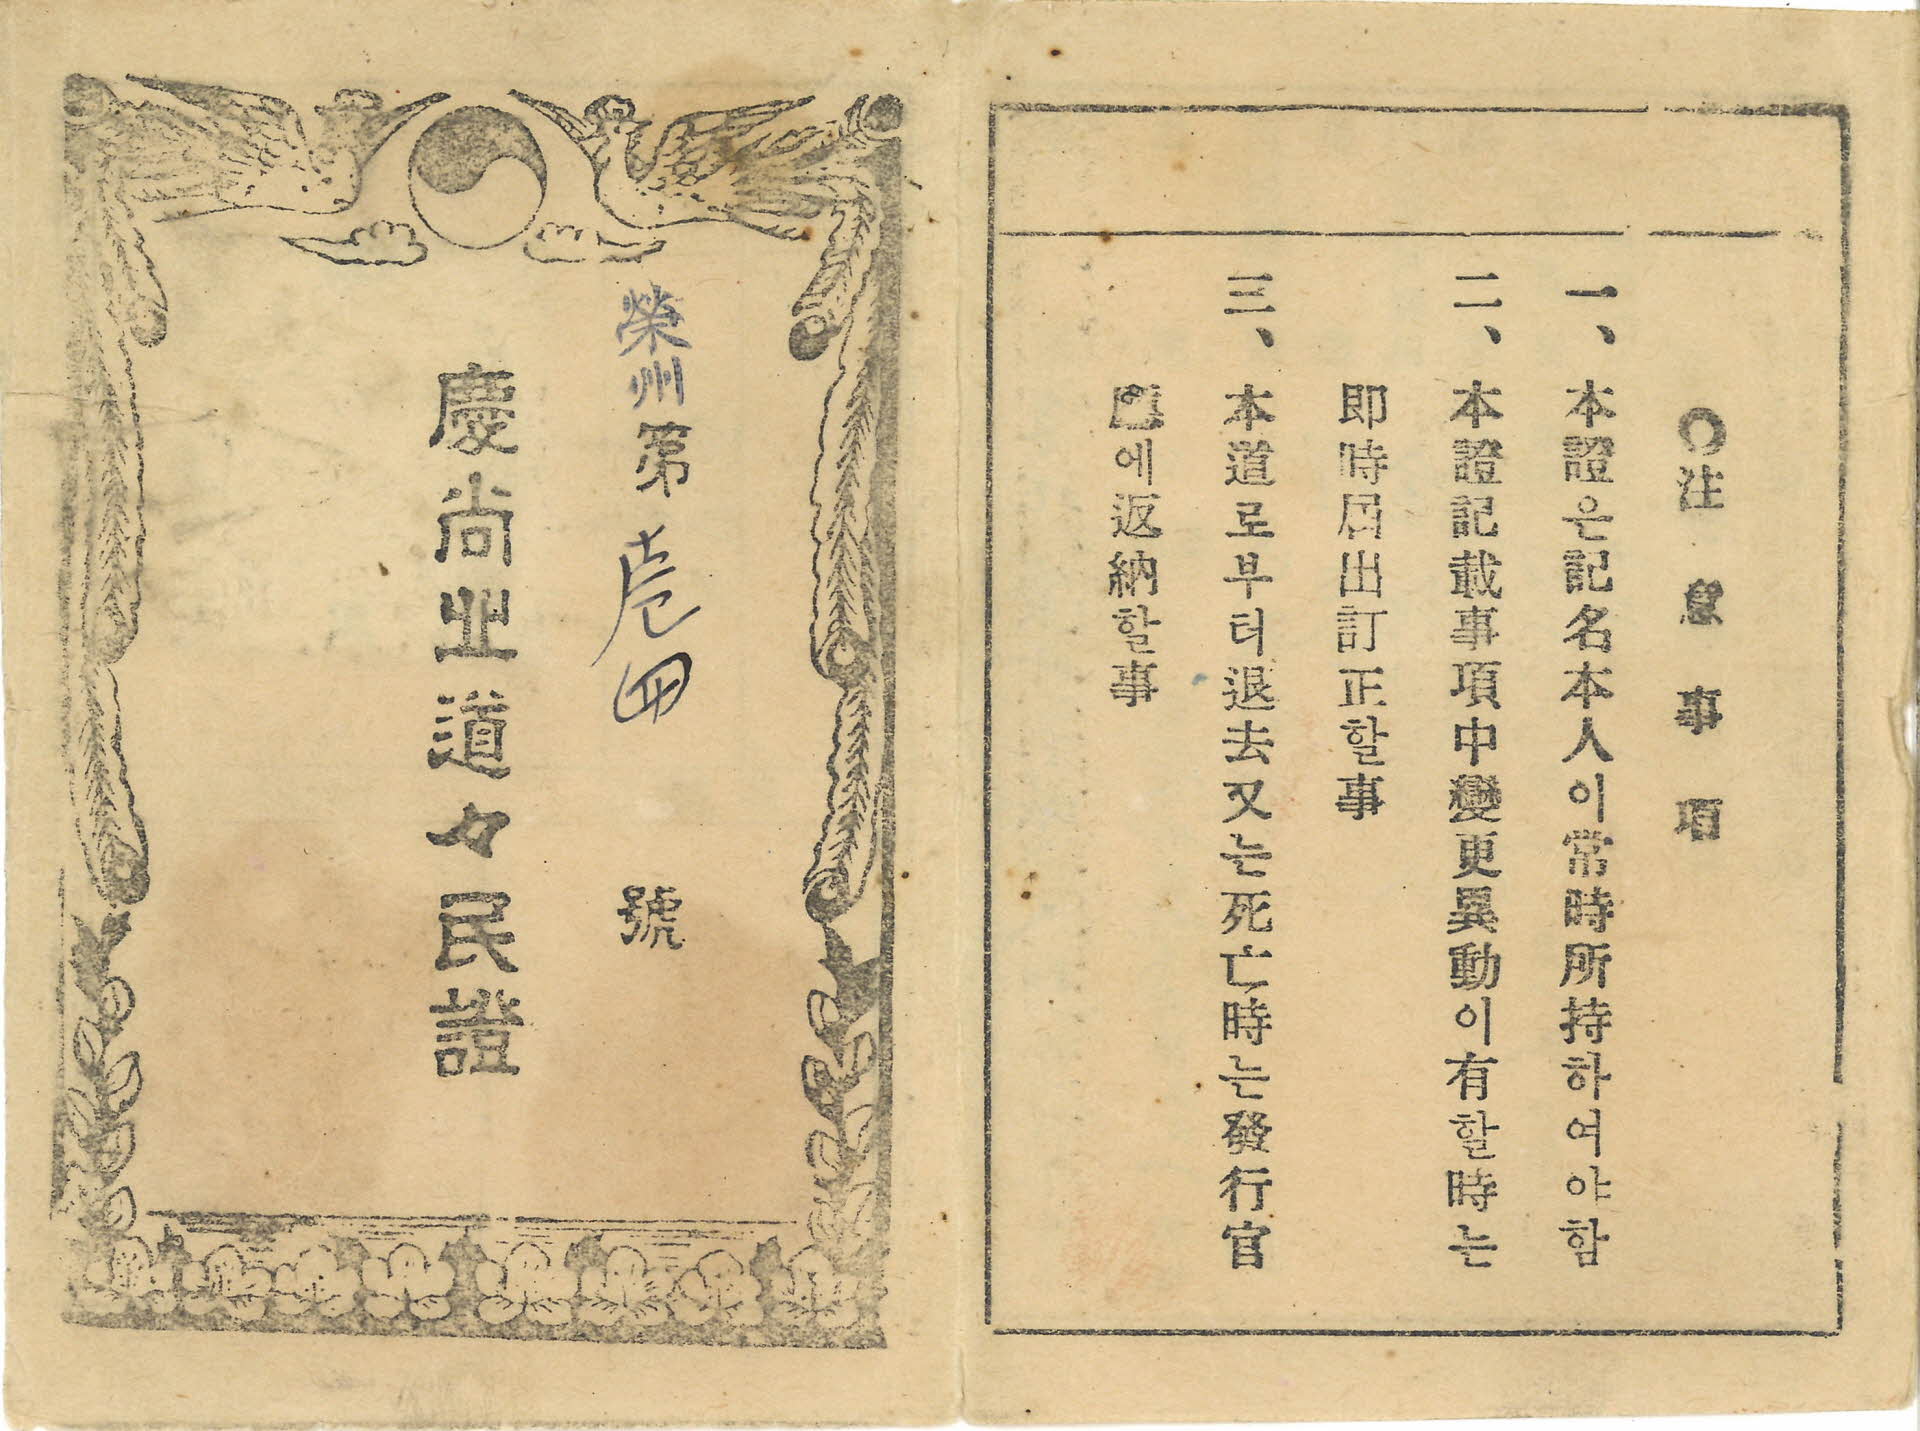 ○注意事項
一、本證은記名本人이常時所持하여야함
二、本證記載事項中變更異動이有할時는
即時届出訂正할事
三、本道로부터退去又는死亡時는發行官
에返納할事
榮州第壱四號
慶尚北道々民證